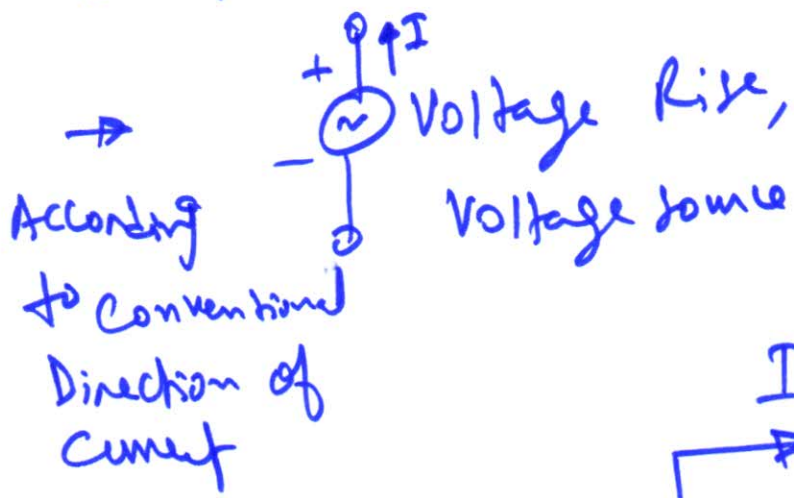 I
+
Voltage Rise,
-
Voltage source
According
to Conventional
Direction of
Current
I